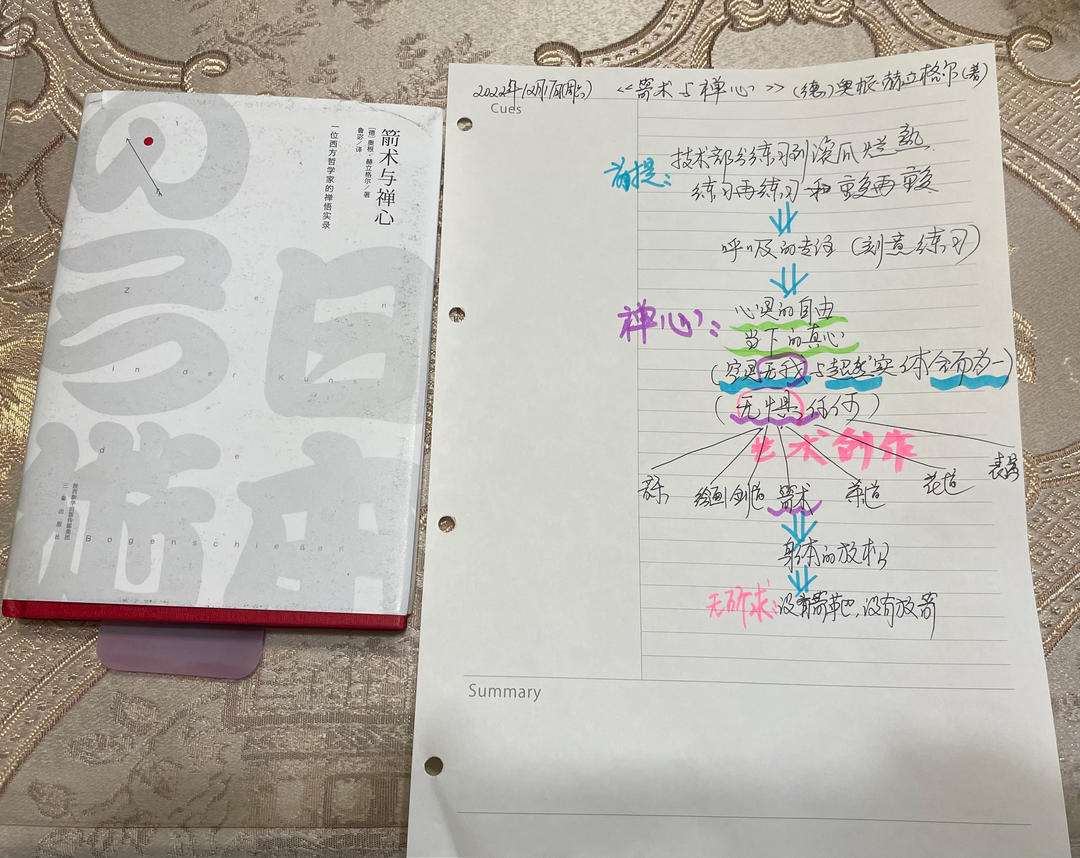 箭术与禅心
[德]奥根·赫立格尔／著
鲁彩／译
一位西方哲学家的禅悟实录
日本
Zen
in der Kunst
des
Bogenschießens
陕西新华出版传媒集团
三秦出版社
Cues
<<箭术与禅心>> (德)奥根·赫立格尔(著)
前提:
技术部分练习到滚瓜烂熟.
练习再练习和重复再重复
呼吸的专注 (刻意练习)
禅心:
心灵的自由
当下的真心
(空洞无我与超越实体合而为一)
(无惧任何)
艺术创作
音乐 绘画 剑道 箭术 茶道 花道 表演
身体的放松
无所求: 没有箭靶,没有放箭
Summary